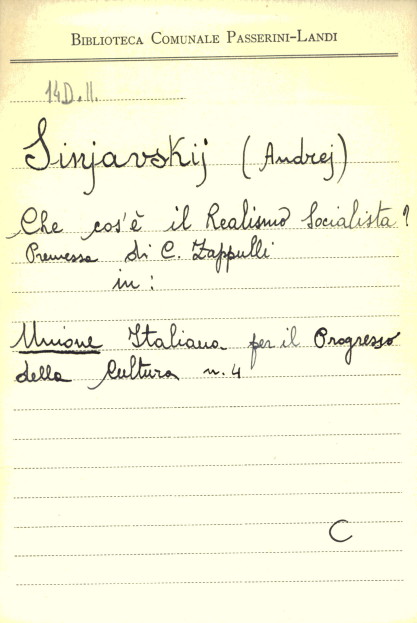 BIBLIOTECA COMUNALE PASSERINI-LANDI
14D.II.
Sinjavskij (Andrej)
Che cos'è il Realismo Socialista?
Premessa di C. Zappulli
in:
Unione Italiana per il Progresso
della Cultura n. 4
C